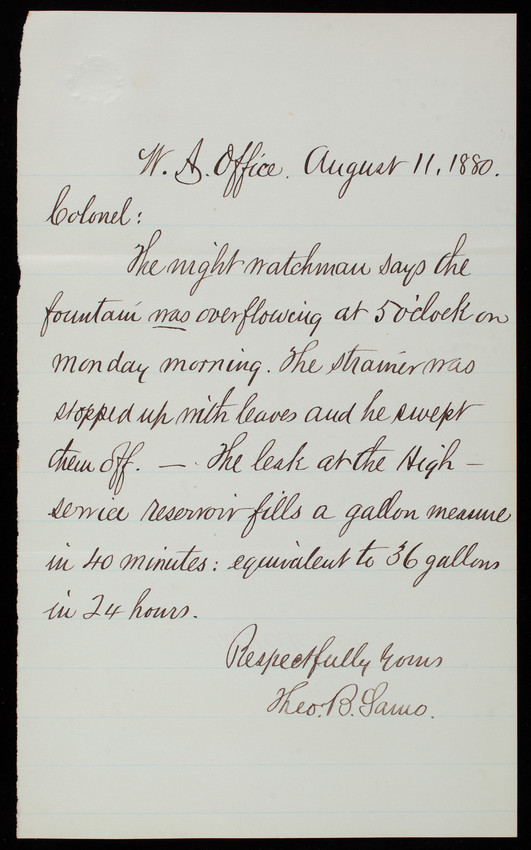 W. A. Office. August 11, 1880.
Colonel:
The night watchman says the
fountain was overflowing at 5 o'clock on
Monday morning. The strainer was
stopped up with leaves and he swept
them off. — The leak at the High-
service reservoir fills a gallon measure
in 40 minutes: equivalent to 36 gallons
in 24 hours.
Respectfully Yours
Theo. B. Samo.